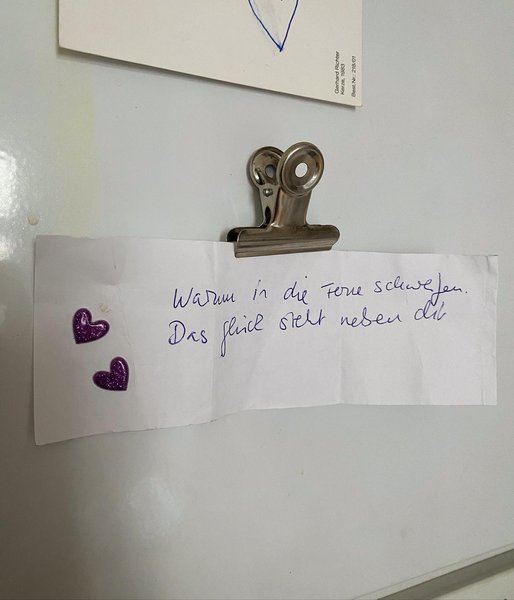 Gerhard Richter
Kerze, 1983
Best.Nr.: 218/01
Warum in die Ferne schweifen.
Das Glück steht neben dir